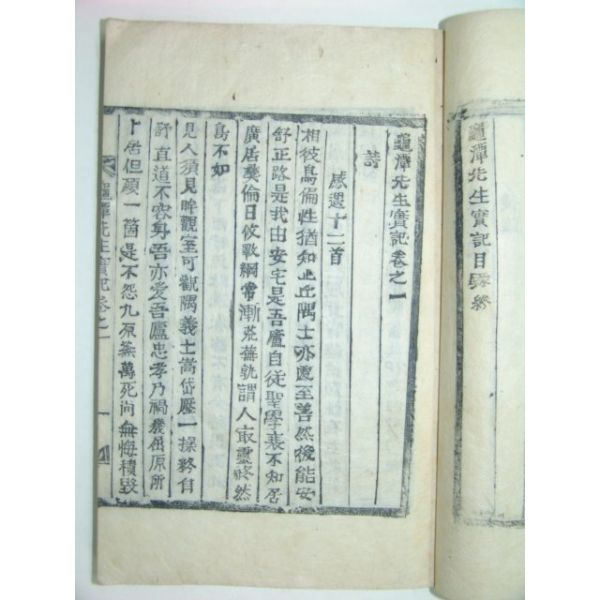 龜潭先生實記目錄終
龜潭先生實記卷之一
詩
感遇十二首
相彼鳥倫性猶知止丘隅士亦處至善然後能安
舒正路是我由安宅是吾廬自從聖學衰不知居
廣居彛倫日攸斁綱常漸荒蕪孰謂人最靈終然
鳥不如
見人須見眸觀室可觀隅義士嵩岱壓一操終自
舒直道不容身吾亦愛吾廬忠孝乃禍幾屈原所
卜居但願一箇是不怨九原蕪萬死尚無悔積毀
龜潭先生實記卷之一
一